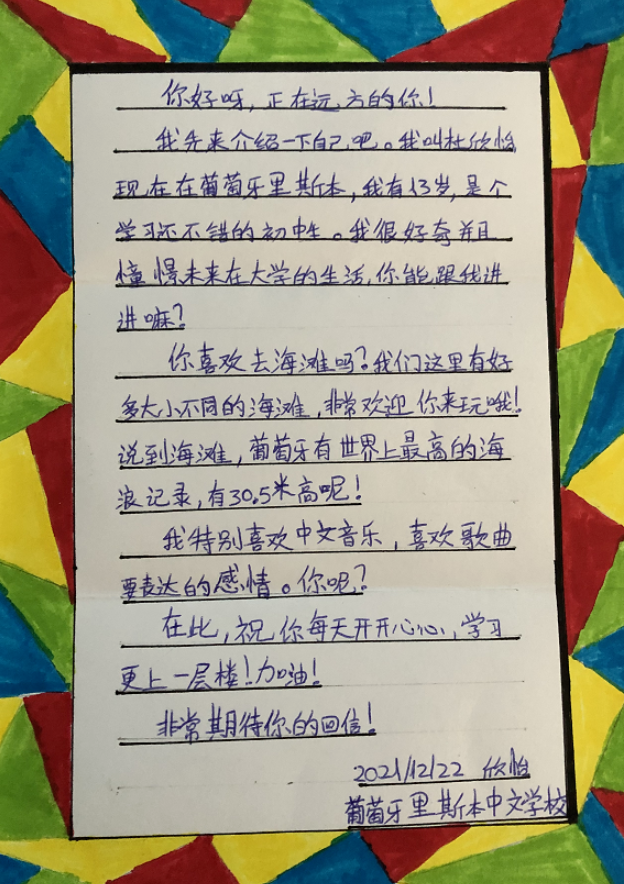 你好呀,正在远方的你!
我先来介绍一下自己吧。我叫杜欣怡,
现在在葡萄牙里斯本,我有13岁,是个
学习还不错的初中生。我很好奇并且
憧憬未来在大学的生活,你能跟我讲
讲嘛?
你喜欢去海滩吗?我们这里有好
多大小不同的海滩,非常欢迎你来玩哦!
说到海滩,葡萄牙有世界上最高的海
浪记录,有30.5米高呢!
我特别喜欢中文音乐,喜欢歌曲
要表达的感情。你呢?
在此,祝你每天开开心心,学习
更上一层楼!加油!
非常期待你的回信!
2021/12/22 欣怡
葡萄牙里斯本中文学校